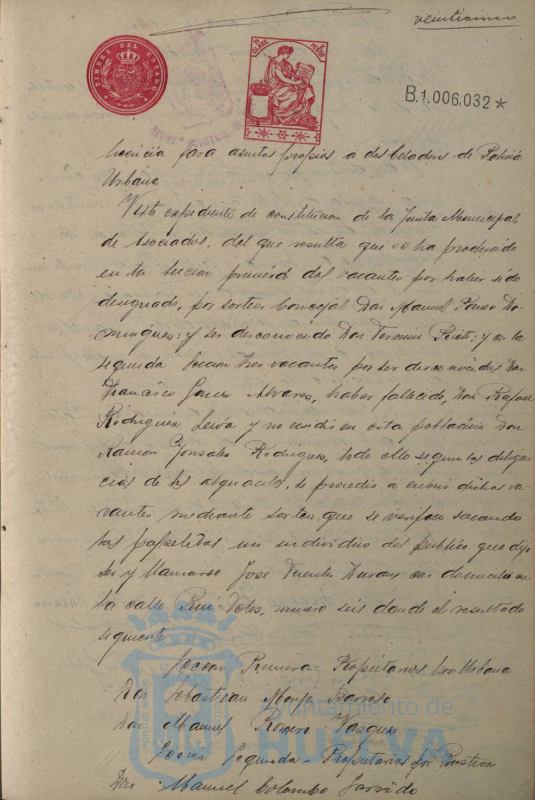 veinticinco
TIMBRE DEL ESTADO
CLASE
B.1.006.032*
licencia para asuntos propios á dos Celadores de Policia
Urbana
Visto expediente de constitucion de la Junta Municipal
de Asociados, del que resulta que se ha producido
en la Seccion primera dos vacantes por haber sido
designado, por sorteo Concejal Don Manuel Do-
minguez: y ser desconocido Don Fermin Prieto; y en la
segunda Seccion tres vacantes por ser desconocidos Don
Francisco Alvarez, haber fallecido, Don Rafael
Rodriguez Leiva y no residir en esta poblacion Don
Ramon Gonzalez Rodriguez, todo ello segun las diligen
cias de los alguaciles, se procedio á cubrir dichas va-
cantes mediante sorteo que se verifico sacando
las papeletas un individuo del publico que dijo
ser y llamarse José Fuentes Duran con domicilio en
la calle Rui Velez, numero seis dando el resultado
siguiente
Seccion Primera - Propietarios por Urbana
Don Sebastian Barroso
Don Manuel Romero Vazquez
Seccion Segunda - Propietarios por Rustica
Don Manuel Colombo Garrido
Ayuntamiento de
HUELVA